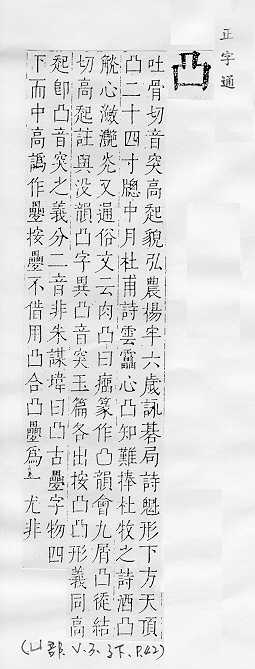 正字通
凸
吐骨切音突高起貌弘農楊牢六歲詠棊局詩魁形下方天頂
凸二十四寸牕中月杜甫詩雲靄心凸知難捧杜牧之詩酒凸
觥心瀲灔炗又通俗文云肉凸曰瘤篆作凸韻會九屑凸徒結
切高起註與没韻凸字異凸音突玉篇各出按凸凸形義同高
起卽凸音突之義分二音非朱謀㙔曰凸古壘字物四
下而中高譌作壘按壘不借用凸合凸壘爲一尤非
(凵部, V.2, 子下, P.42)